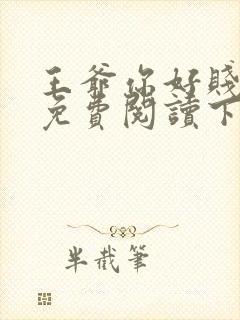 王爺你好賤
免費閱讀下
半截筆